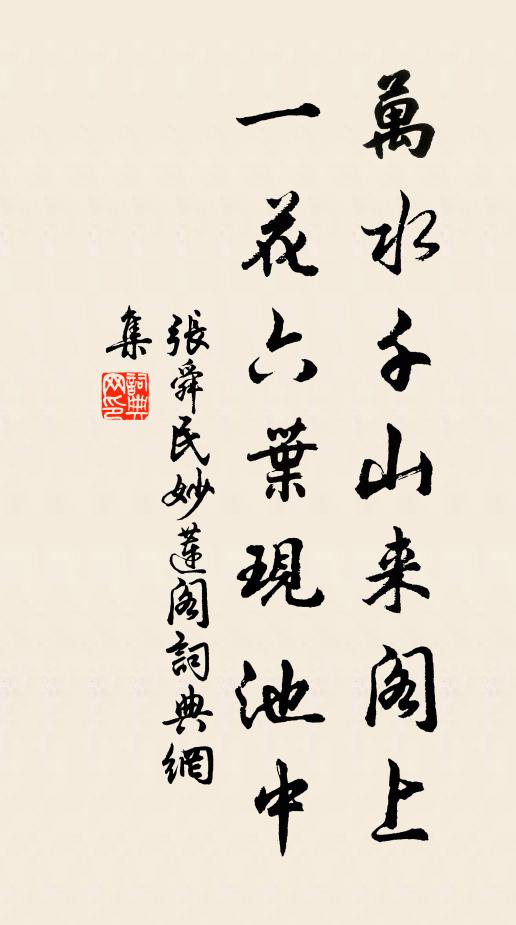 萬水千山来阁上
一花六葉現池中
張舜民妙蓮阁詞典網
集
詞典
网印